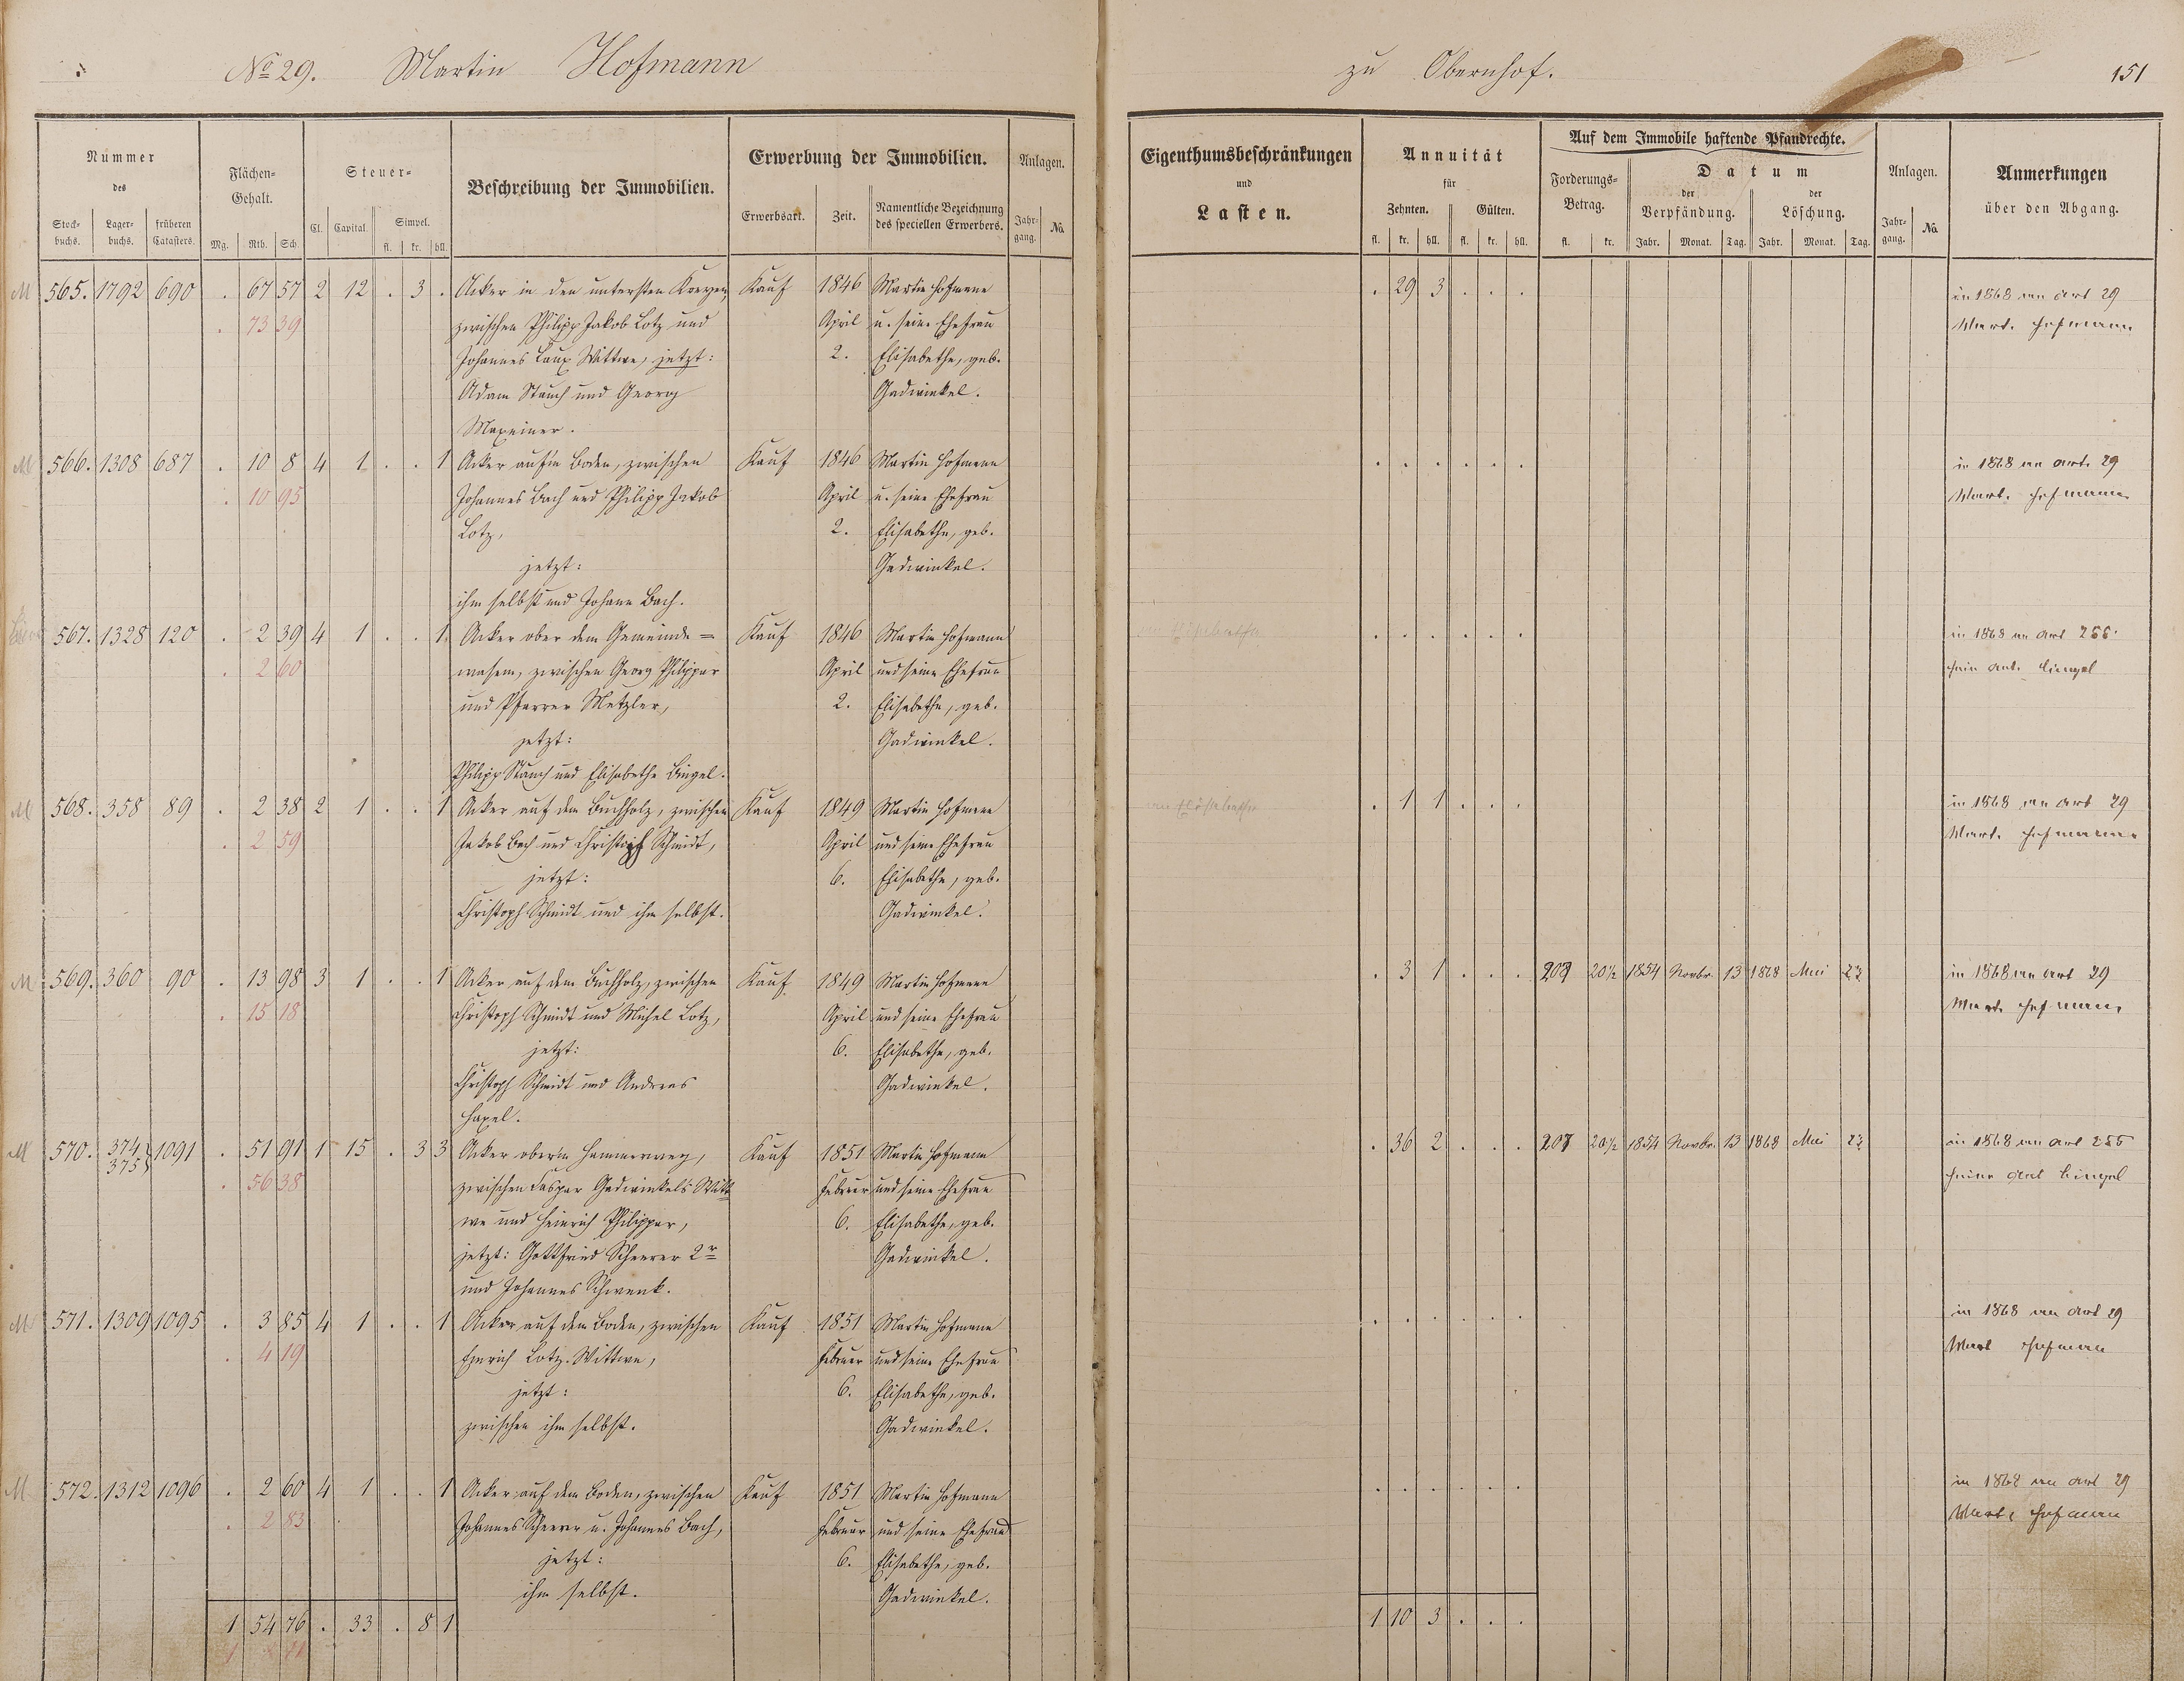 No 29. Martin Hofmann
zu Obernhof.
151
Nummer des
Stock-buchs. Lager-buchs. früheren Catasters.
Flächen-Gehalt.
Mg. Rth. Sch.
Steuer-
Cl. Capital. Simpel.
fl. kr. hll.
Beschreibung der Immobilien.
Erwerbung der Immobilien.
Erwerbsart. Zeit. Namentliche Bezeichnung des speciellen Erwerbers.
Anlagen.
Jahr-gang. No.
Eigenthumsbeschränkungen
und
Lasten.
Annuität
für
Zehnten. Gülten.
fl. kr. hll. fl. kr. hll.
Auf dem Immobile haftende Pfandrechte.
Forderungs-Betrag.
fl. kr.
Datum
der Verpfändung. der Löschung.
Jahr. Monat. Tag. Jahr. Monat. Tag.
Anlagen.
Jahr-gang. No.
Anmerkungen
über den Abgang.
M 565. 1792 690 . 67 57 2 12 . 3 . Acker in den untersten Kreyen, Kauf 1846 Martin Hofmann . 29 3 . . . in 1868 an Art 29
. 73 39 zwischen Philipp Jakob Lotz und April u. seine Ehefrau Mart. Hofmann
Johannes Laux Wittwe, jetzt: 2. Elisabethe, geb.
Adam Stauch und Georg Gadwinkel.
Maxeiner.
M 566. 1308 687 . 10 8 4 1 . . 1 Acker auf'm Boden, zwischen Kauf 1846 Martin Hofmann . . . . . . in 1868 an Art. 29
. 10 95 Johannes Bach und Philipp Jakob April u. seine Ehefrau Mart. Hofmann
Lotz, 2. Elisabethe, geb.
jetzt: Gadwinkel.
ihm selbst und Johann Bach.
567. 1328 120 . 2 39 4 1 . . 1. Acker ober dem Gemeinde= Kauf 1846 Martin Hofmann . . . . . . in 1868 an Art 255
. 2 60 wasem, zwischen Georg Philippar April und seine Ehefrau Bingel
und Pfarrer Metzler, 2. Elisabethe, geb.
jetzt: Gadwinkel.
Philipp Stauch und Elisabethe Bingel.
M 568. 358 89 . 2 38 2 1 . . 1 Acker auf dem Buchholz, zwischen Kauf 1849 Martin Hofmann . 1 1 . . . in 1868 an Art 29
. 2 59 Jakob Bach und Christoph Schmidt, April und seine Ehefrau Mart. Hofmann
jetzt: 6. Elisabethe, geb.
Christoph Schmidt und ihm selbst. Gadwinkel.
M 569. 360 90 . 13 98 3 1 . . 1 Acker auf dem Buchholz, zwischen Kauf 1849 Martin Hofmann . 3 1 . . . 207 20½ 1854 Novbr. 13 1868 Mai in 1868 an Art 29
. 15 18 Christoph Schmidt und Michel Lotz, April und seine Ehefrau Mart. Hofmann
jetzt: 6. Elisabethe, geb.
Christoph Schmidt und Andreas Gadwinkel.
Hagel.
M 570. 374 375 1091 . 51 91 1 15 . 3 3 Acker oberm Hammerweg, Kauf 1851 Martin Hofmann . 36 2 . . . 207 20½ 1854 Novbr. 13 1868 Mai in 1868 an Art 255
. 56 38 zwischen Caspar Gadwinkels Witt Februar und seine Ehefrau Bingel
we und Heinrich Philippar, 6. Elisabethe, geb.
jetzt: Gottfried Scheerer 2r Gadwinkel.
und Johannes Schwenk.
M 571. 1309 1095 . 3 85 4 1 . . 1 Acker auf dem Boden, zwischen Kauf 1851 Martin Hofmann . . . . . . in 1868 an Art 29
. 4 19 Emrich Lotz. Wittwe, Februar und seine Ehefrau Mart Hofmann
jetzt: 6. Elisabethe, geb.
zwischen ihm selbst. Gadwinkel.
M 572. 1312 1096 . 2 60 4 1 . . 1 Acker auf dem Boden, zwischen Kauf 1851 Martin Hofmann . . . . . . in 1868 an Art 29
. 2 83 Johannes Scheerer u. Johannes Bach, Februar und seine Ehefrau Mart. Hofmann
jetzt: 6. Elisabethe, geb.
ihm selbst. Gadwinkel.
1 54 76 . 33 . 8 1 1 10 3 . . .